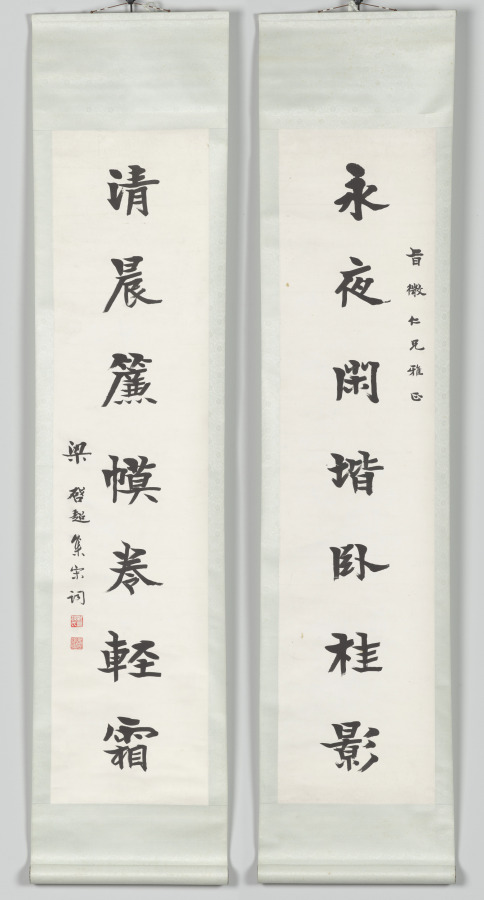 永夜閑堦卧桂影
仁兄雅正
清晨簾幙卷輕霜
梁啓超集宋詞